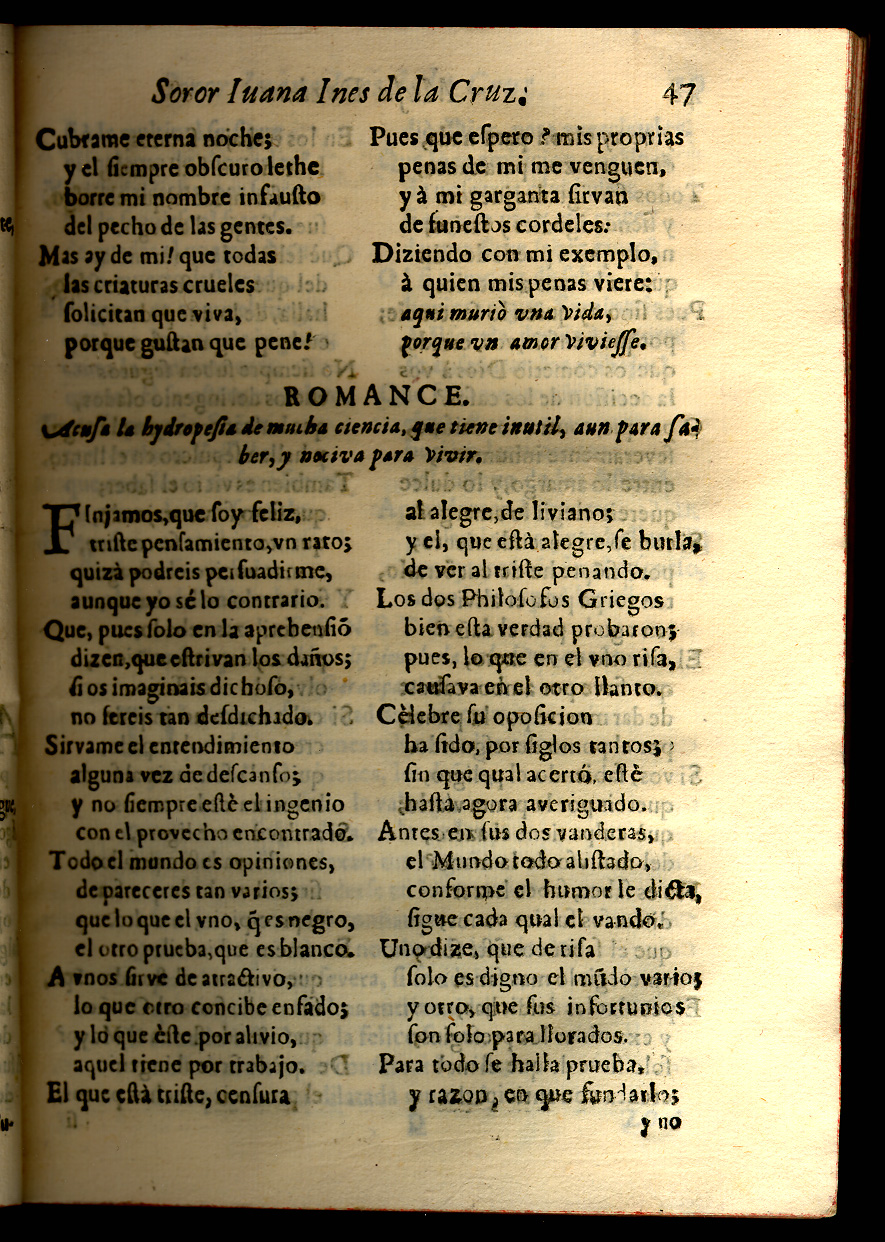 Soror Iuana Ines de la Cruz: 47
Cubrame eterna noche;
y el ſiempre obſcuro lethe
borre mi nombre infauſto
del pecho de las gentes.
Mas ay de mi! que todas
las criaturas crueles
ſolicitan que viva,
porque guſtan que pene!
Pues que eſpero? mis proprias
penas de mi me venguen,
y à mi garganta ſirvan
de funeſtos cordeles:
Diziendo con mi exemplo,
à quien mis penas viere:
aqui muriò vna vida,
porque vn amor vivieſſe.
ROMANCE.
Acuſa la hydropeſia de mucha ciencia, que tiene inutil, aun para ſa-
ber, y nociva para vivir.
FInjamos, que ſoy feliz,
triſte penſamiento, vn rato;
quizà podreis perſuadirme,
aunque yo sè lo contrario.
Que, pues ſolo en la aprehenſiõ
dizen, que eſtrivan los daños;
ſi os imaginais dichoſo,
no ſereis tan deſdichado.
Sirvame el entendimiento
alguna vez de deſcanſo;
y no ſiempre eſtè el ingenio
con el provecho encontrado.
Todo el mundo es opiniones,
de pareceres tan varios;
que lo que el vno, q̃ es negro,
el otro prueba, que es blanco.
A vnos ſirve de atractivo,
lo que otro concibe enfado;
y lo que èſte por alivio,
aquel tiene por trabajo.
El que eſtà triſte, cenſura
al alegre, de liviano;
y el, que eſtà alegre, ſe burla,
de ver al triſte penando.
Los dos Philoſofos Griegos
bien eſta verdad probaron;
pues, lo que en el vno riſa,
cauſava en el otro llanto.
Cèlebre ſu opoſicion
ha ſido, por ſiglos tantos;
ſin que qual acertó, eſtè
haſta agora averiguado.
Antes en ſus dos vanderas,
el Mundo todo aliſtado,
conforme el humor le dicta,
ſigue cada qual el vando.
Uno dize, que de riſa
ſolo es digno el mũdo vario;
y otro, que ſus infortunios
ſon ſolo para llorados.
Para todo ſe halla prueba,
y razon, en que fundarlo;
y no